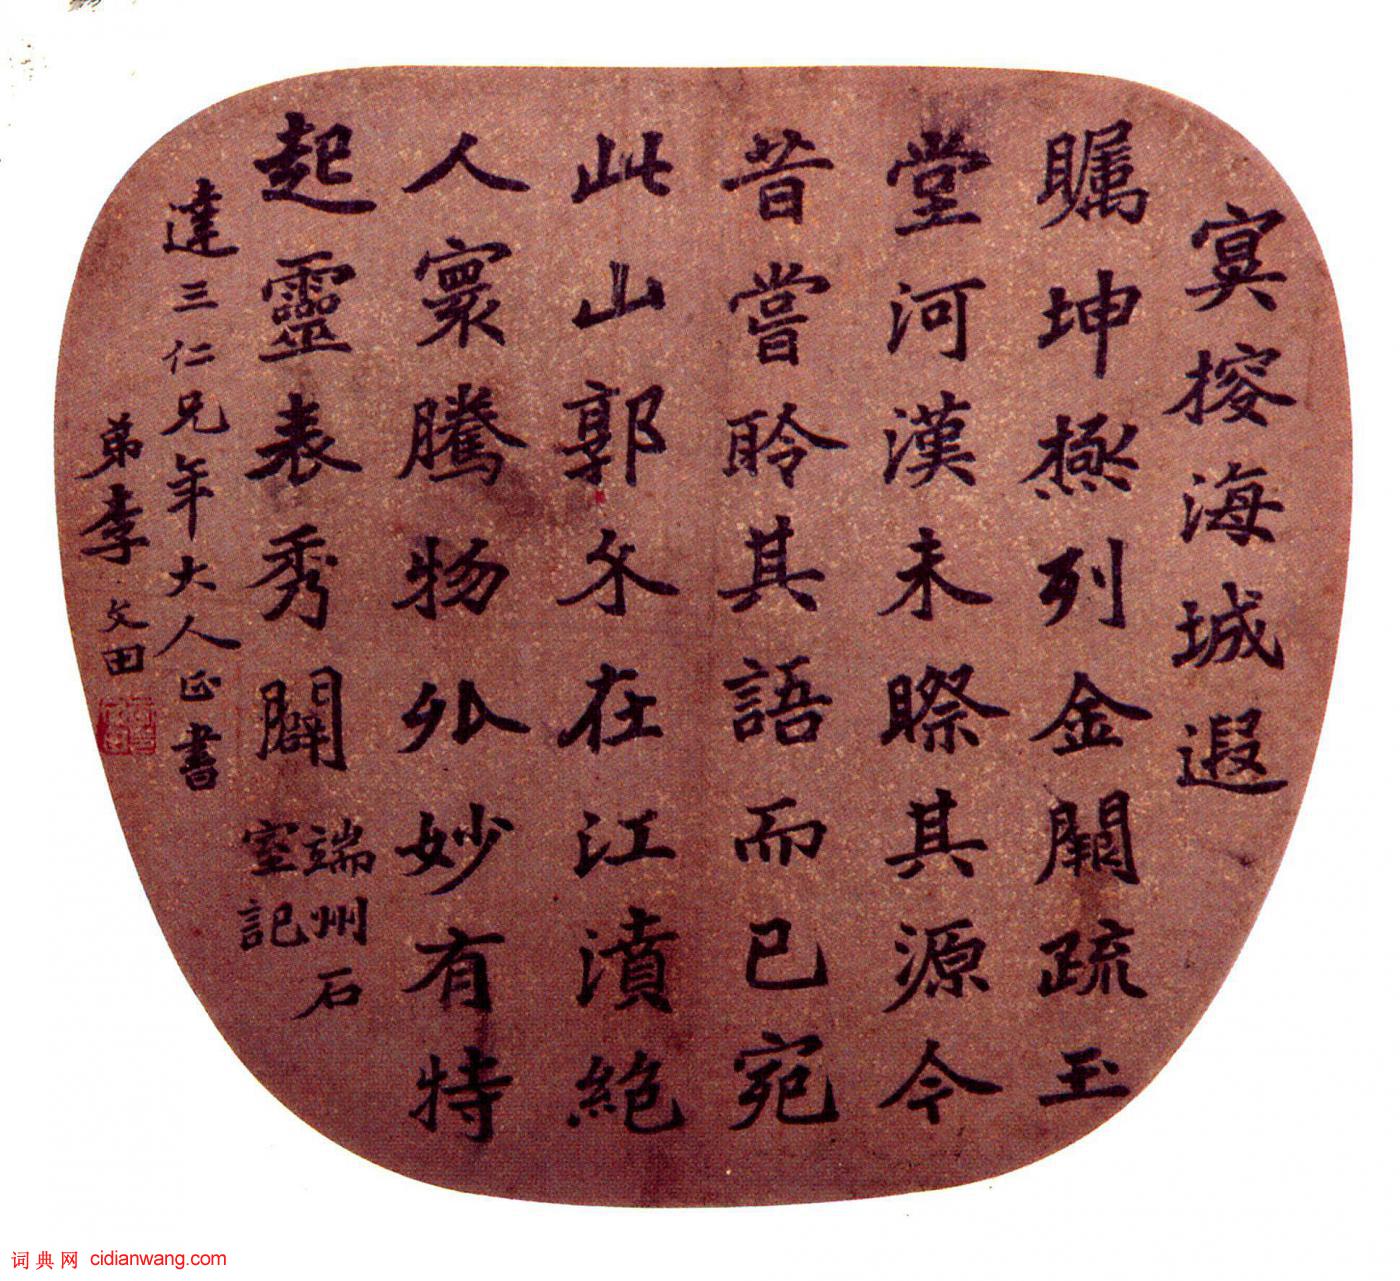 寞搲海城遐
矚坤極列金闕疏玉
堂河漢未際其源今
昔嘗聆其語而已宛
此山郭尒在江濆絶
人寰騰物外妙有特
起靈表秀闢端州石
室記
達三仁兄年大人正書
弟李文田
词典网 cidianwang.com